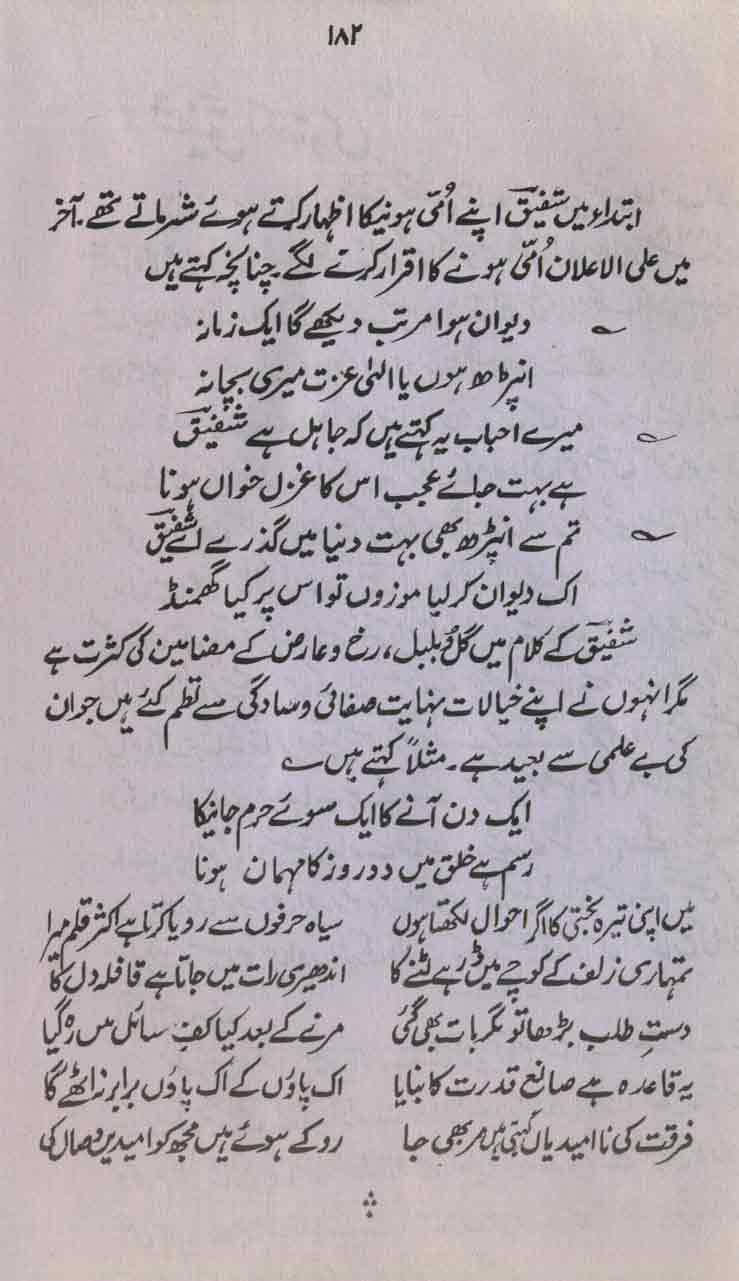 ۱۸۲
ابتداء میں شفیقؔ اپنے اُمّی ہونیکا اظہار کرتے ہوئے شرماتے تھے۔ آخر
میں علی الاعلان اُمّی ہونے کا اقرار کرنے لگے۔ چنانچہ کہتے ہیں
؎ دیوان ہوا مرتب دیکھے گا ایک زمانہ
انپڑھ ہوں یا الہٰی عزت میری بچانہ
؎ میرے احباب یہ کہتے ہیں کہ جاہل ہے شفیقؔ
ہے بہت جائے عجب اس کا غزل خواں ہونا
؎ تم سے انپڑھ بھی بہت دنیا میں گذرے اے شفیقؔ
اک دیوان کر لیا موزوں تو اس پر کیا گھمنڈ
شفیقؔ کے کلام میں گل و بلبل، رخ و عارض کے مضامین کی کثرت ہے
مگر انہوں نے اپنے خیالات نہایت صفائی و سادگی سے نظم کئے ہیں جو ان
کی بے علمی سے بعید ہے۔ مثلاً کہتے ہیں ؎
ایک دن آنے کا ایک سوئے حرم جانیکا
رسم ہے خلق میں دو روز کا مہمان ہونا
میں اپنی تیرہ بختی کا اگر احوال لکھتا ہوں سیاہ حرفوں سے رو دیا کرتا ہے اکثر قلم میرا
تمہاری زلف کے کوچے میں ڈر ہے لٹنے کا اندھیری رات میں جاتا ہے قافلہ دل کا
دستِ طلب بڑھا تو مگر بات بھی گئی مرنے کے بعد کیا کفِ سائل میں رہ گیا
یہ قاعدہ ہے صانع قدرت کا بنایا اک پاؤں کے اک پاؤں برابر نہ اٹھے گا
فرقت کی نا امیدیاں کہتی ہیں مر بھی جا روکے ہوئے ہیں مجھ کو امیدیں وصال کی